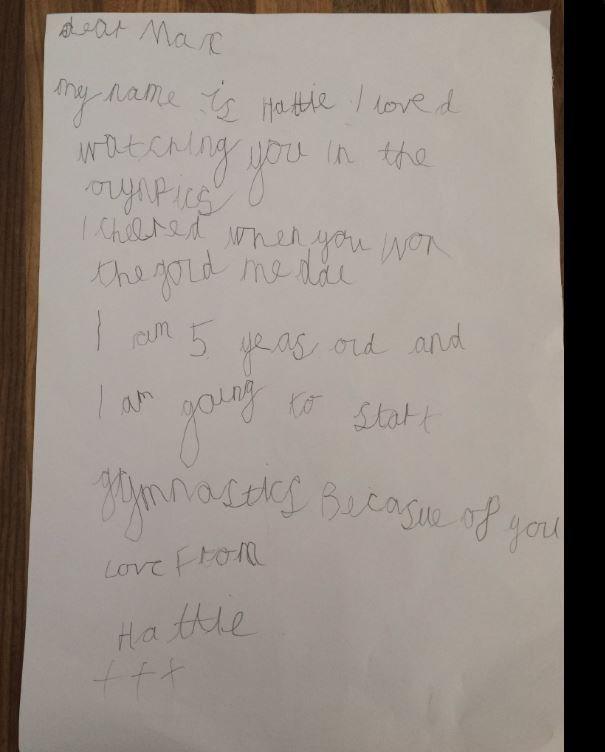 dear Max
my name is Hattie I loved
watching you in the
olynpics
I cheered when you won
the gold medal
I am 5 yeas old and
I am going to start
gymnastics Becasue of you
Love From
Hattie
+++